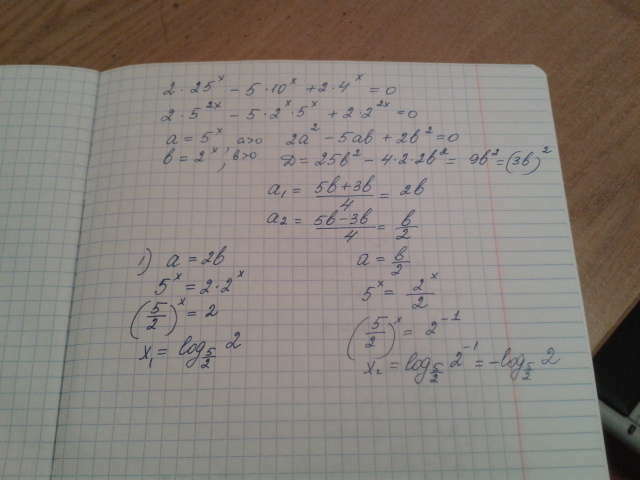 2 · 25^x − 5 · 10^x + 2 · 4^x = 0
2 · 5^{2x} − 5 · 2^x · 5^x + 2 · 2^{2x} = 0
a = 5^x, a>0 2a^2 − 5ab + 2b^2 = 0
b = 2^x, b>0 D = 25b^2 − 4 · 2 · 2b^2 = 9b^2 = (3b)^2
a_1 = (5b+3b)/4 = 2b
a_2 = (5b−3b)/4 = b/2
1) a = 2b
5^x = 2 · 2^x
(5/2)^x = 2
x_1 = log_{5/2} 2
a = b/2
5^x = 2^x/2
(5/2)^x = 2^{−1}
x_2 = log_{5/2} 2^{−1} = −log_{5/2} 2